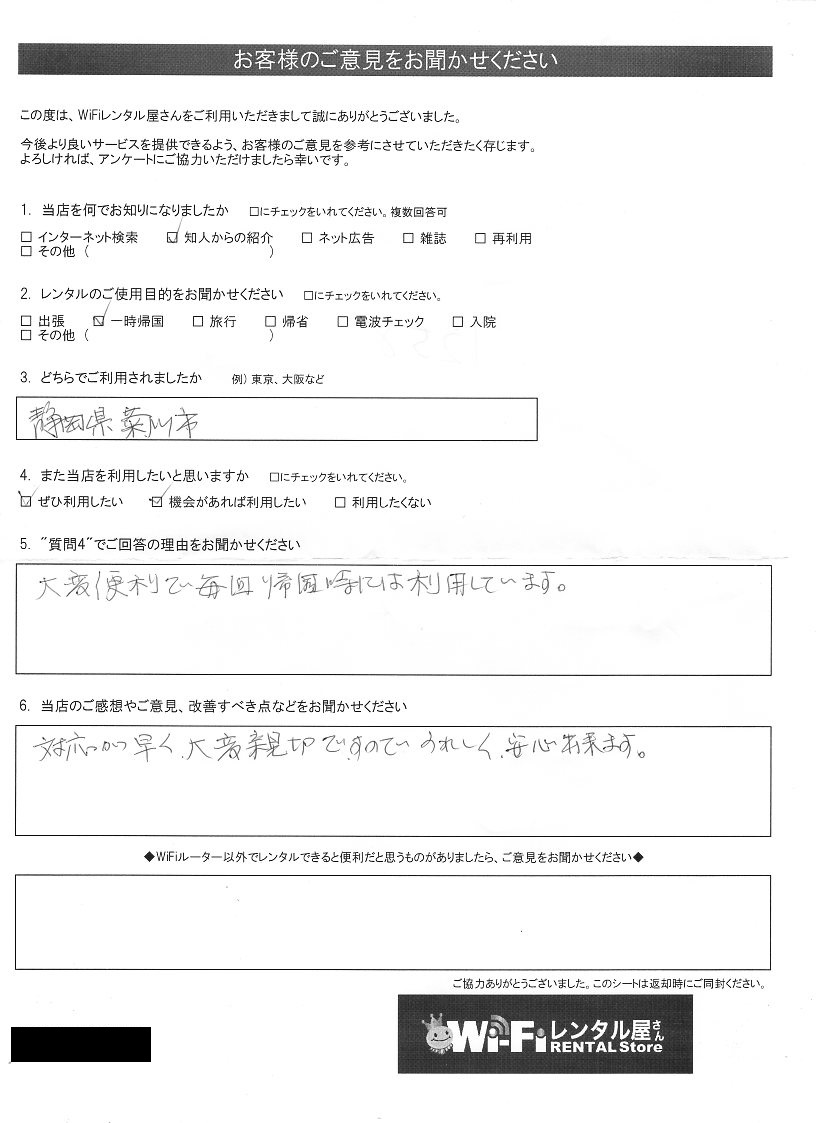 お客様のご意見をお聞かせください
この度は、WiFiレンタル屋さんをご利用いただきまして誠にありがとうございました。
今後より良いサービスを提供できるよう、お客様のご意見を参考にさせていただきたく存じます。
よろしければ、アンケートにご協力いただけましたら幸いです。
1. 当店を何でお知りになりましたか □にチェックをいれてください。複数回答可
□ インターネット検索 ☑ 知人からの紹介 □ ネット広告 □ 雑誌 □ 再利用
□ その他 ( )
2. レンタルのご使用目的をお聞かせください □にチェックをいれてください。
□ 出張 ☑ 一時帰国 □ 旅行 □ 帰省 □ 電波チェック □ 入院
□ その他 ( )
3. どちらでご利用されましたか 例）東京、大阪など
静岡県菊川市
4. また当店を利用したいと思いますか □にチェックをいれてください。
☑ ぜひ利用したい ☑ 機会があれば利用したい □ 利用したくない
5. "質問4"でご回答の理由をお聞かせください
大変便利で毎回帰国時には利用しています。
6. 当店のご感想やご意見、改善すべき点などをお聞かせください
対応が早く、大変親切ですのでうれしく、安心出来ます。
◆WiFiルーター以外でレンタルできると便利だと思うものがありましたら、ご意見をお聞かせください◆
ご協力ありがとうございました。このシートは返却時にご同封ください。
Wi-Fiレンタル屋さん
RENTAL Store